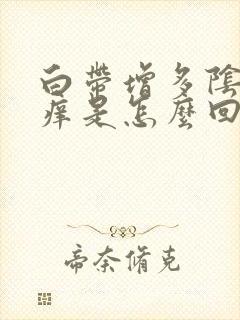 白帶增多陰
癢是怎麼回
帝奈脩克